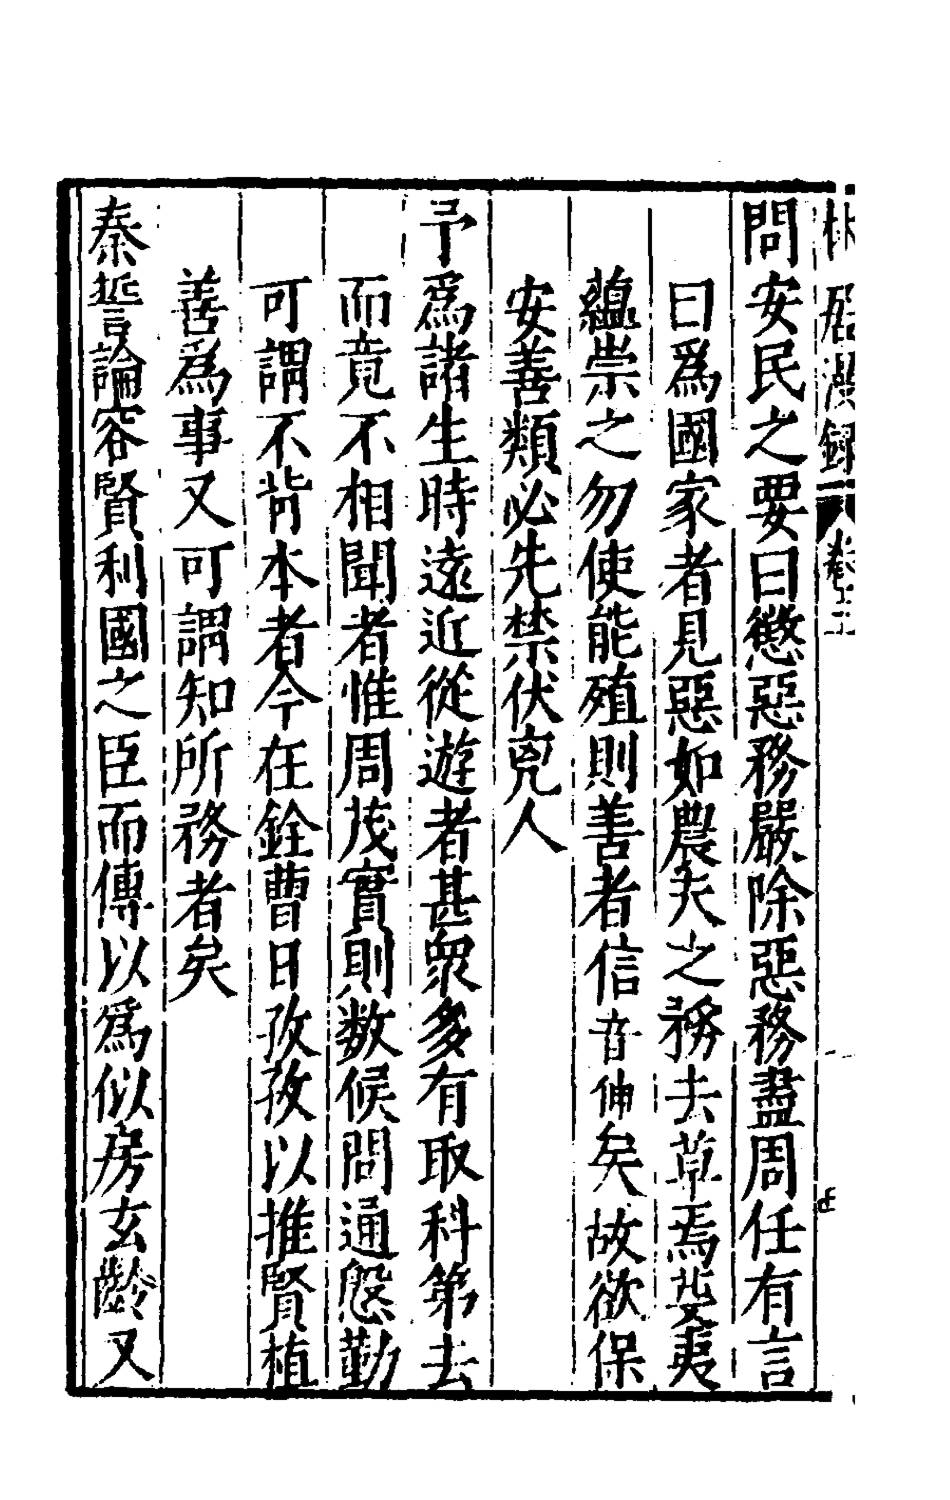 林居漫錄 卷之二
問安民之要曰懲惡務嚴除惡務盡周任有言
曰爲國家者見惡如農夫之務去草焉芟夷
蘊崇之勿使能殖則善者信音伸矣故欲保
安善類必先禁伏兇人
予爲諸生時遠近從遊者甚衆多有取科第去
而竟不相聞者惟周茂實則数候問通慇勤
可謂不背本者今在銓曹日孜孜以推賢植
善爲事又可謂知所務者矣
秦誓論容賢利國之臣而傳以爲似房玄齡又